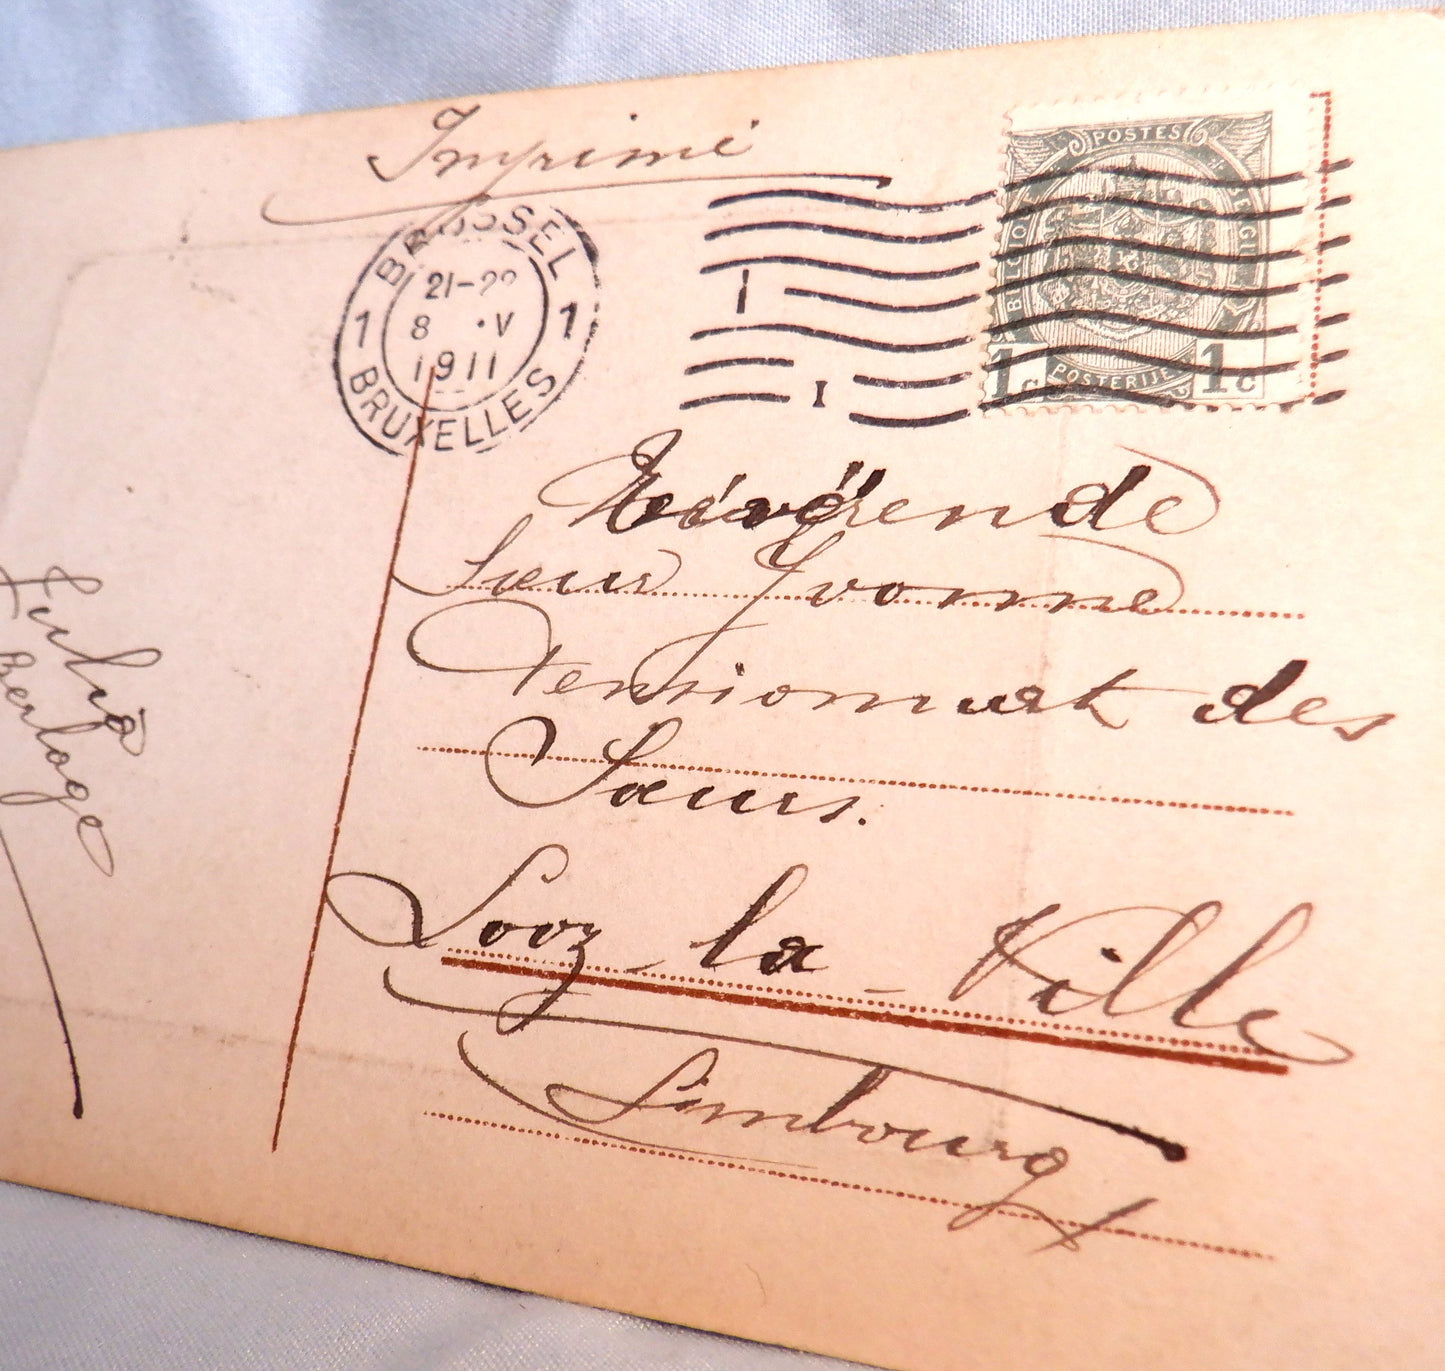 Imprimé
BRUSSEL
21-22
8 ·V
1911
1 1
BRUXELLES
I
I
POSTES
BELGIQUE
BELGIË
1c 1c
POSTERIJEN
Révérende
Sœur Yvonne
Pensionnat des
Sœurs.
Looz-la-Ville
Limbourg
Julia
Berloge